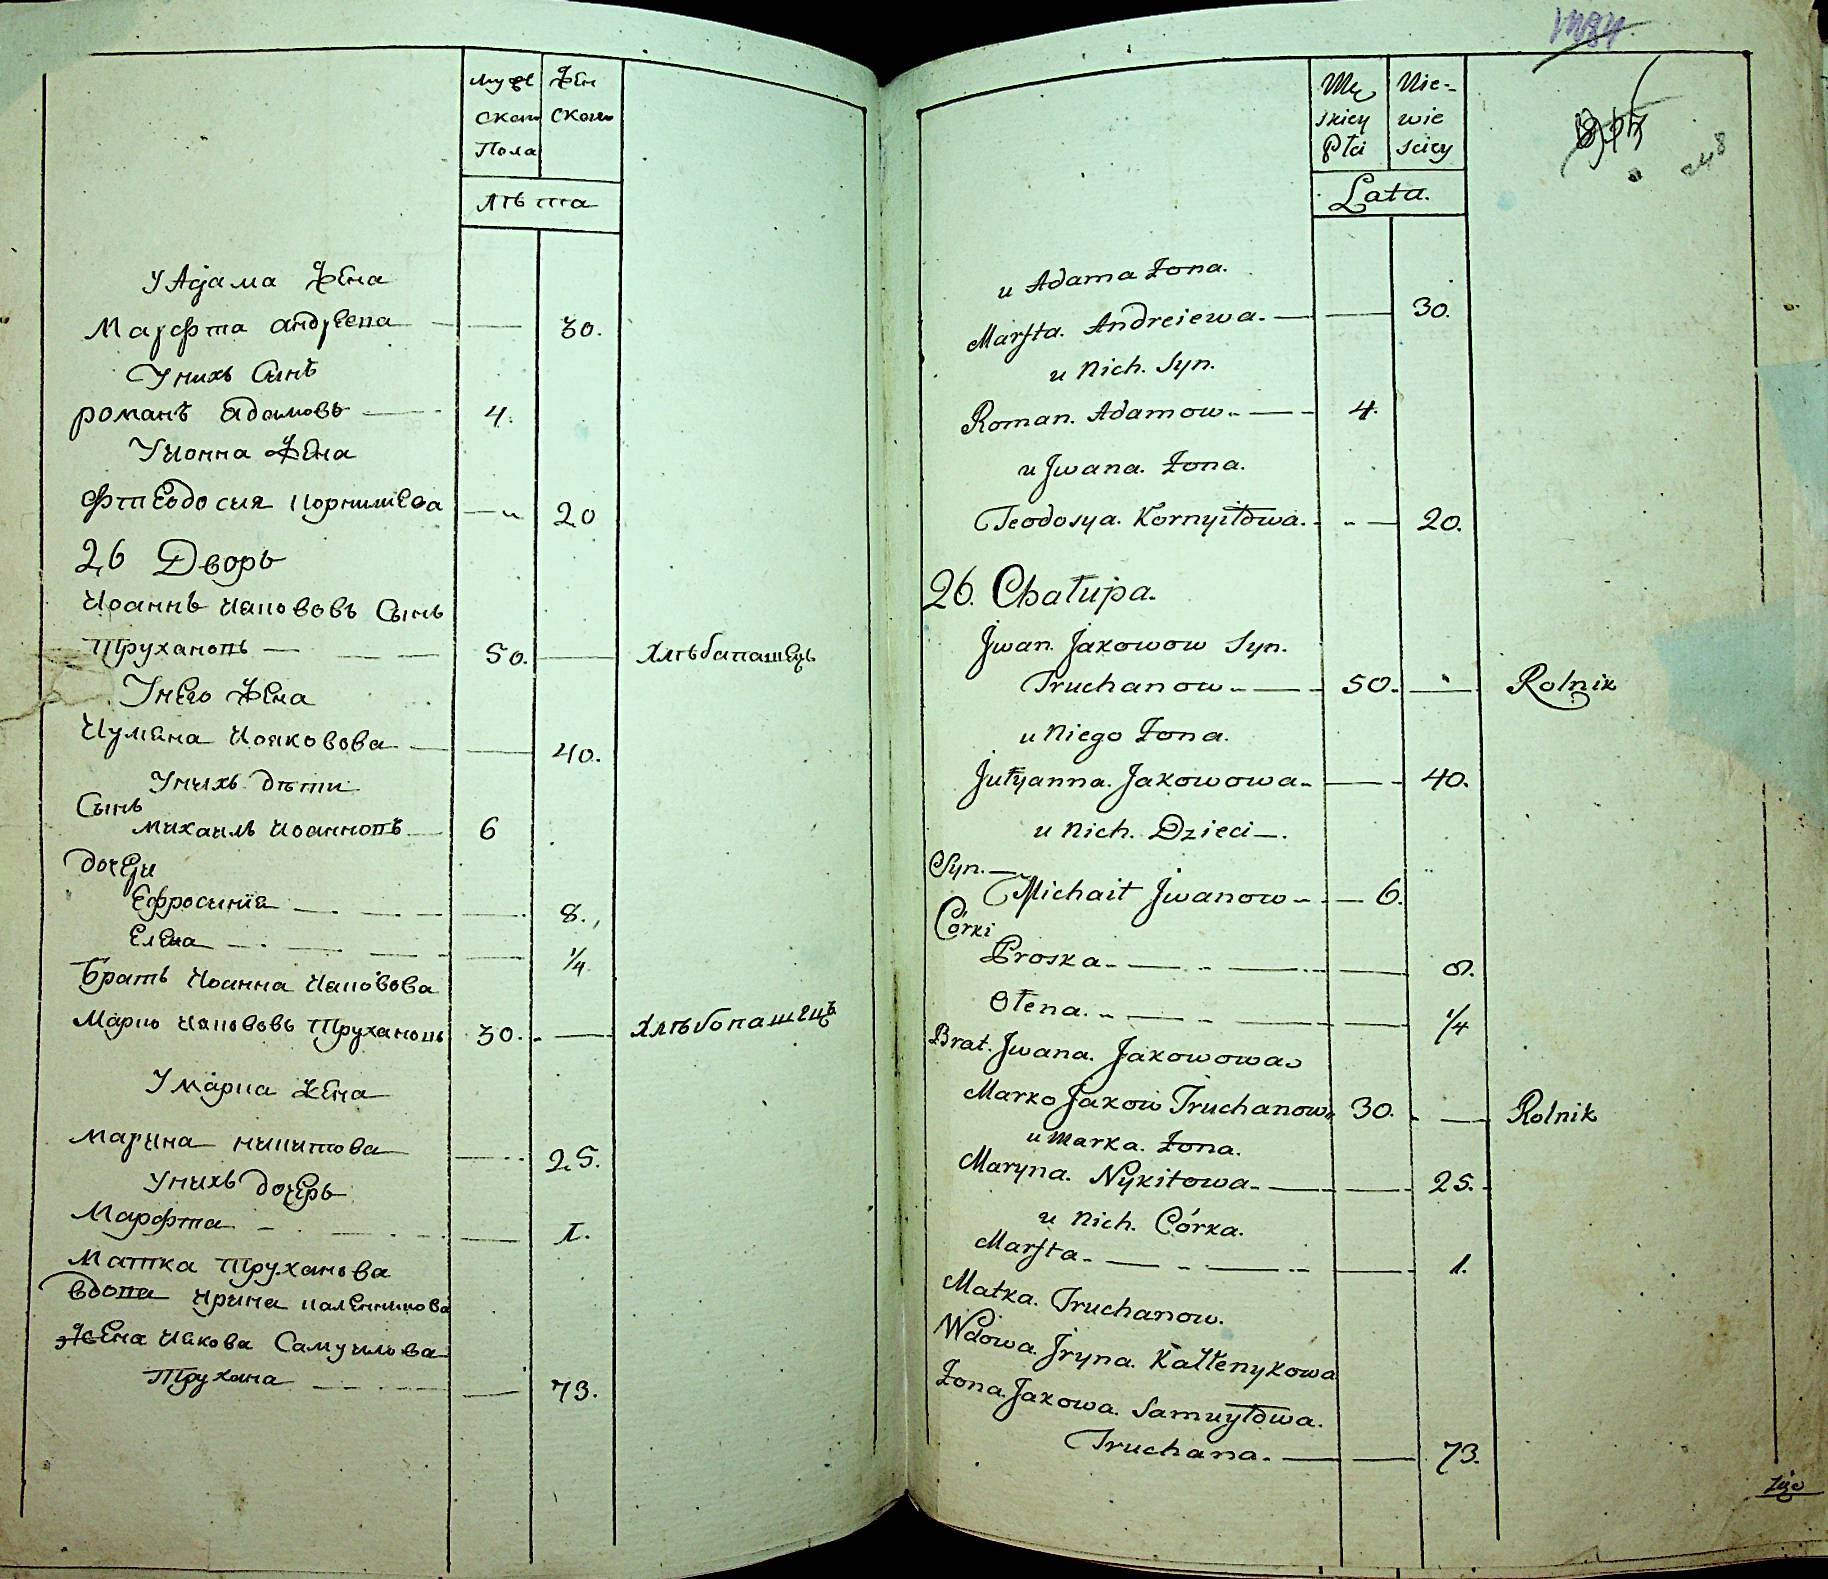 Муже Жен
ского ского
Пола
Лѣта
У Адама Жена
Марфта Андреева 30.
У нихъ Сынъ
Романъ Адамовъ 4.
У Иоанна Жена
Фтеодосия Корнилиева 20
26 Дворъ
Иоаннъ Иакововъ Сынъ
Трухановъ 50. Хлѣбапашецъ
У него Жена
Иулиана Иоаковова 40.
У нихъ дѣти
Сынъ
Михаилъ Иоанновъ 6
дочери
Ефросиния 8.
Елена 1/4
Братъ Иоанна Иаковова
Марко Иаковъ Трухановъ 30. Хлѣбопашецъ
У Марка Жена
Марина Никитова 25.
У нихъ дочерь
Марфта 1.
Матка Труханова
вдова Ирина Каленикова
Жена Иакова Самуилова
Трухана 73.
1784
Mę Nie-
skiey wie
Płci sciey
248
Lata.
u Adama Żona.
Marfta. Andreiewa. 30.
u Nich. Syn.
Roman. Adamow. 4.
u Jwana. Żona.
Teodosya. Kornyiłowa. 20.
26. Chałupa.
Jwan. Jakowow Syn.
Truchanow 50. Rolnik
u Niego Żona.
Jułyanna. Jakowowa 40.
u Nich. Dzieci
Syn.
Michaił Jwanow 6.
Córki
Proska 8.
Ołena. 1/4
Brat. Jwana. Jakowowa
Marko Jakow Truchanow 30. Rolnik
u Marka. Żona.
Maryna. Nykitowa 25.
u Nich. Córka.
Marfta 1.
Matka. Truchanow.
Wdowa. Jryna. Kałłenykowa
Żona. Jakowa. Samuyłowa.
Truchana. 73.